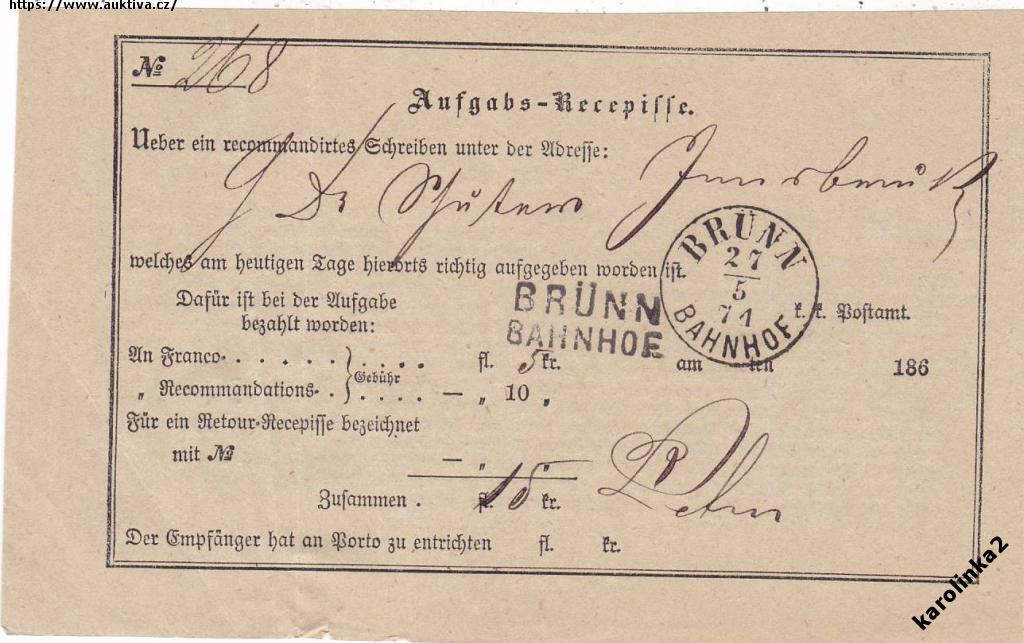 https://www.auktiva.cz/
№ 268
Aufgabs-Recepisse.
Ueber ein recommandirtes Schreiben unter der Adresse:
Dr Innsbruck
welches am heutigen Tage hierorts richtig aufgegeben worden ist.
BRÜNN
27
5
71
BAHNHOF
Dafür ist bei der Aufgabe
bezahlt worden:
BRÜNN
BAHNHOF
k. k. Postamt.
An Franco . . . . . . } Gebühr . . . . fl. 5 kr. am ten 186
„ Recommandations . . } . . . . — „ 10 „
Für ein Retour-Recepisse bezeichnet
mit № — „ „
Zusammen . fl. 15 kr.
Der Empfänger hat an Porto zu entrichten fl. kr.
karolinka2